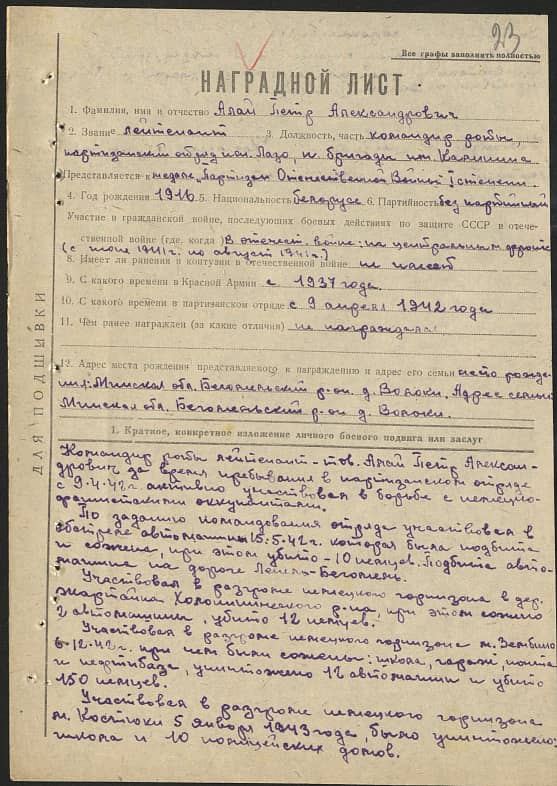 23
Все графы заполнить полностью
НАГРАДНОЙ ЛИСТ
1. Фамилия, имя и отчество Апай Петр Александрович
2. Звание лейтенант 3. Должность, часть командир роты,
партизанский отряд им. Лазо, п. бригады им. Калинина
Представляется к медали „Партизан Отечественной Войны I степени.
4. Год рождения 1916 5. Национальность белорус 6. Партийность без партийный
Участие в гражданской войне, последующих боевых действиях по защите СССР в отече-
ственной войне (где, когда) В отечест. войне: на центральном фронте
(с июня 1941г. по август 1941г.)
8. Имеет ли ранения и контузии в отечественной войне не имеет
9. С какого времени в Красной Армии с 1937 года.
10. С какого времени в партизанском отряде с 9 апреля 1942 года
11. Чем ранее награжден (за какие отличия) не награждался
12. Адрес места рождения представляемого к награждению и адрес его семьи место рожде-
ния: Минская обл. Бегомльский р-он д. Волоки. Адрес семьи
Минская обл. Бегомльский р-он д. Волоки.
1. Краткое, конкретное изложение личного боевого подвига или заслуг
Командир роты лейтенант-тов. Апай Петр Алексан-
дрович за время пребывания в партизанском отряде
с 9.4.42г. активно участвовал в борьбе с немецко-
фашистскими оккупантами.
По заданию командования отряда участвовал в
обстреле автомашины 15.5.42г. которая была подбита
и сожжена, при этом убито-10 немцев. Подбита авто-
машина на дороге Бегомль.
Участвовал в разгроме немецкого гарнизона в дер.
р-на, при этом сожжено
2 автомашины, убито 12 немцев.
Участвовал в разгроме немецкого гарнизона м. Зембино
6.12.42г. при чем были сожжены: школа, гараж, почта
и нефтебаза, уничтожено 12 автомашин и убито
150 немцев.
Участвовал в разгроме немецкого гарнизона
м. Костюки 5 января 1943 года, было уничтожено:
школа и 10 полицейских домов.
ДЛЯ ПОДШИВКИ